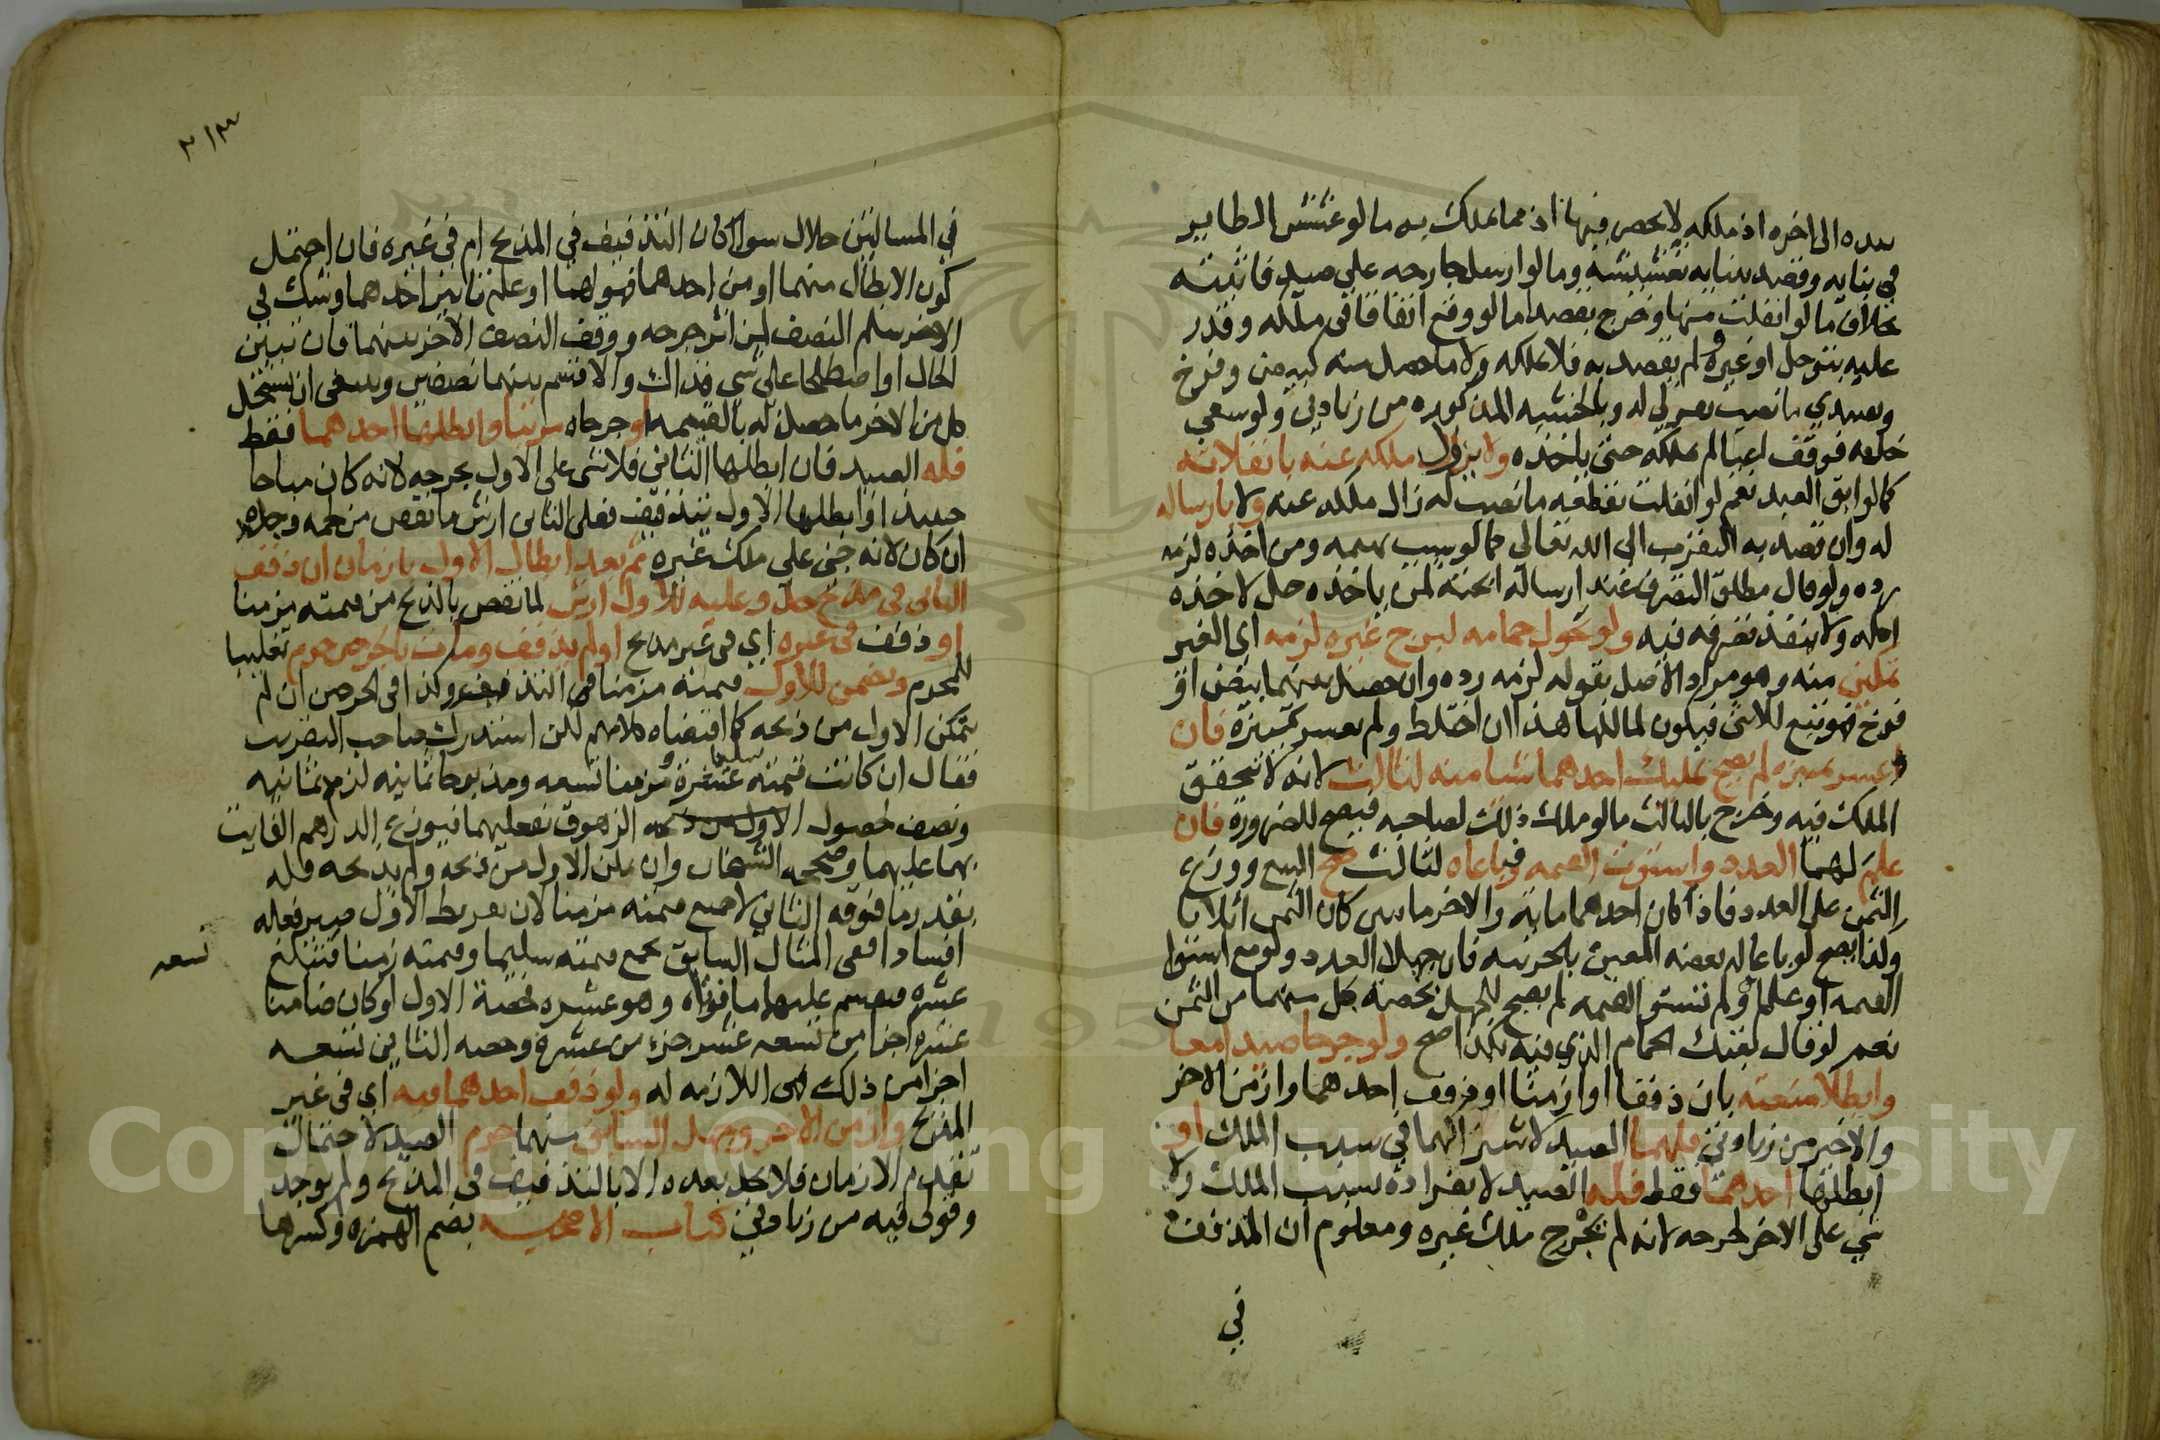 بيده الى اخره اذ ملكه لا يحصر فيها اذ مما يملك به ما لو عشش الطاير
في بنايه وقصد ببنايه تعشيشه وما لو ارسل جارحه على صيد فاثبتته
بخلاف ما لو انفلت منها وخرج بقصد ما لو وقع اتفاقا في ملكه وقدر
عليه بتوحل او غيره ولم يقصده به فلا يملكه ولا ما حصل منه كبيض وفرخ
وتعبيري بما نصب تعبيري له وبالحيثيه المذكوره من زيادتي ولو سعى
خلفه فوقف اعيا لم يملكه حتى ياخذه ولا يزول ملكه عنه بانفلاته
كما لو ابق العبد نعم لو انفلت بقطعه ما نصب له زال ملكه عنه ولا بارساله
له وان قصد به التقرب الى الله تعالى كما لو سيب بهيمه ومن اخذه لزمه
رده ولو قال مطلق التصرف عند ارساله ابحته لمن ياخذه حل لاخذه
اكله ولا ينفذ تصرفه فيه ولو تحول حمامه لبرج غيره لزمه اي الغير
تمكين منه وهو مراد الاصل بقوله لزمه رده وان حصل بينهما بيض او
فرخ فهو تبع للانثى فيكون لمالكها هذا ان اختلط ولم يعسر تمييزه فان
عسر تمييزه لم يصح تمليك احدهما شيا منه لثالث لانه لا يتحقق
الملك فيه وخرج بالثالث ما لو ملك ذلك لصاحبه فيصح للضرورة فان
علم لهما العدد واستوت القيمه وباعاه لثالث صح البيع ووزع
الثمن على العدد فاذا كان لاحدهما مايه والاخر مايتين كان الثمن اثلاثا
وكذا يصح لو باعا له بعضه المعين بالجزييه فان جهلا العدد ولو مع استوا
القيمه او علماه ولم تستو القيمه لم يصح للجهل بحصه كل منهما من الثمن
نعم لو قال بعتك الحمام الذي فيه بكذا صح ولو جرحا صيدا معا
وابطلا منعته بان ذففا او ازمنا او ذفف احدهما وازمن الاخر
والاخير من زيادتي فلهما الصيد لاشتراكهما في سبب الملك او
ابطلها احدهما فقط فله الصيد لانفراده بسبب الملك ولا
شي على الاخر لجرحه لانه لم يجرح ملك غيره ومعلوم ان المذفف
في
٣١٣
في المسالتين حلال سواا كان التذفيف في المذبح ام في غيره فان احتمل
كون الابطال منهما او من احدهما فهو لهما او علم تاثير احدهما وشك في
الاخر سلم النصف لمن اثر جرحه ووقف النصف الاخر بينهما فان تبين
الحال او اصطلحا على شي فذاك والا قسم بينهما نصفين وينبغي ان يستحل
كل من الاخر ما حصل له بالقسمه او جرحاه مرتبا وابطلها احدهما فقط
فله الصيد فان ابطلها الثاني فلا شي على الاول بجرحه لانه كان مباحا
حينيذ او ابطلها الاول بتذفيف فعلى الثاني ارش ما نقص من لحمه وجلده
ان كان لانه جنى على ملك غيره ثم بعد ابطال الاول بازمان ان ذفف
الثاني في مذبح حل وعليه للاول ارش لما نقص بالذبح من قيمته مزمنا
او ذفف في غيره اي في غير مذبح او لم يذفف ومات بالجرحين حرم تغليبا
للمحرم ويضمن للاول قيمته مزمنا في التذفيف وكذا في الجرحين ان لم
يتمكن الاول من ذبحه كما اقتضاه كلامهم لكن استدرك صاحب التقريب
فقال ان كانت قيمته سليما عشرة ومزمنا تسعه ومذبوحا ثمانيه لزمه ثمانيه
ونصف لحصول الزهوق بفعلهما فيوزع الدرهم الفايت
بهما عليهما وصححه الشيخان وان تمكن الاول من ذبحه ولم يذبحه فله
بقدر ما فوته الثاني لا جميع قيمته مزمنا لان تفريط الاول صير فعله
افسادا ففي المثال السابق تجمع قيمته سليما وقيمته زمنا فتبلغ تسعه
عشر فيقسم عليهما ما فوتاه وهو عشره فحصة الاول لو كان ضامنا
عشره اجزا من تسعه عشر جزء من عشره وحصه الثاني تسعه
اجزا من ذلك فهي اللازمه له ولو ذفف احدهما فيه اي في غير
المذبح وازمن الاخر وجهل السابق منهما حرم الصيد لاحتمال
تقدم الازمان فلا يحل بعده الا بالتذفيف في المذبح ولم يوجد
وقولي فيه من زيادتي كتاب الاضحيه بضم الهمزه وكسرها